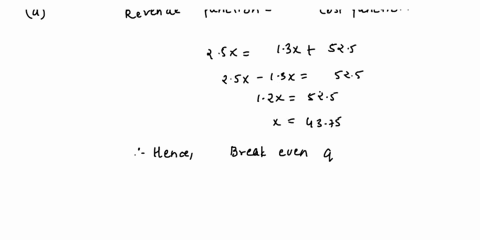 (a) Revenue function = Cost function.
2.5x = 1.3x + 52.5
2.5x - 1.3x = 52.5
1.2x = 52.5
x = 43.75
∴ Hence, Break even q